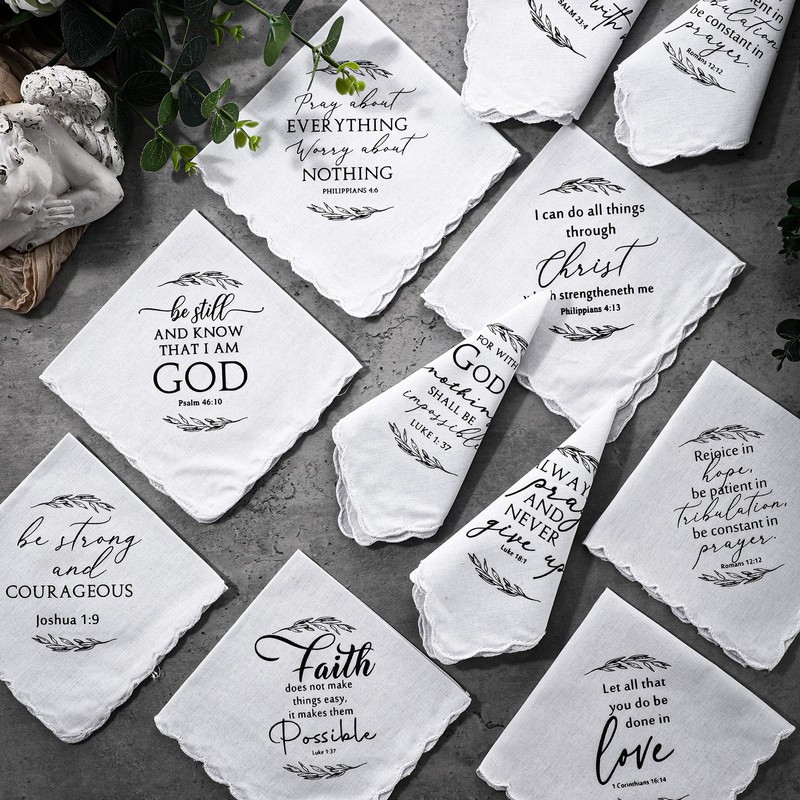 with
PSALM 23:4
be constant in
prayer.
Romans 12:12
Pray about
EVERYTHING
Worry about
NOTHING
PHILIPPIANS 4:6
I can do all things
through
Christ
strengtheneth me
Philippians 4:13
be still
AND KNOW
THAT I AM
GOD
Psalm 46:10
FOR WITH
GOD
nothing
SHALL BE
impossible
LUKE 1:37
AND
NEVER
give up
Luke 18:1
Rejoice in
hope,
be patient in
tribulation,
be constant in
prayer.
Romans 12:12
be strong
and
COURAGEOUS
Joshua 1:9
Faith
does not make
things easy,
it makes them
Possible
Luke 1:37
Let all that
you do be
done in
love
1 Corinthians 16:14